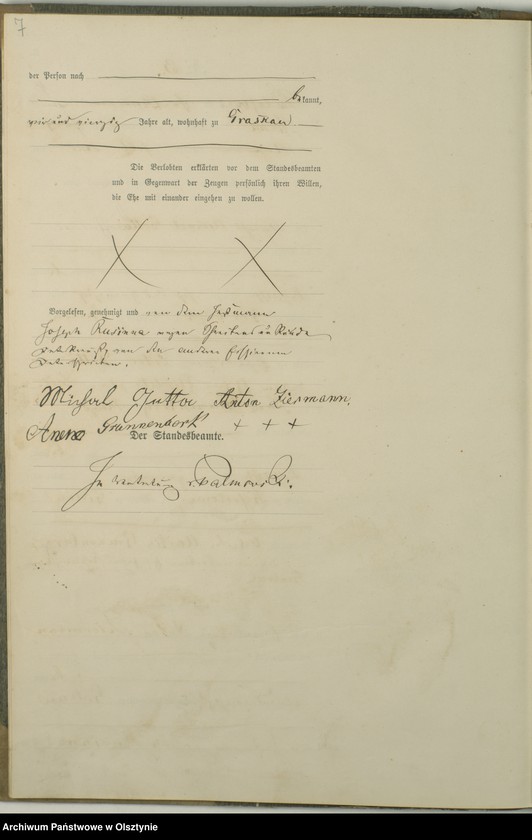 7
der Person nach
bekannt,
vier und vierzig Jahre alt, wohnhaft zu Graskau.
Die Verlobten erklärten vor dem Standesbeamten
und in Gegenwart der Zeugen persönlich ihren Willen,
die Ehe mit einander eingehen zu wollen.
Vorgelesen, genehmigt und von dem
Joseph wegen
von den anderen Erschienenen
unterschrieben.
Michael Jutta Anton Ziermann.
Grunnenbork + + +
Der Standesbeamte.
In Vertretung
Archiwum Państwowe w Olsztynie